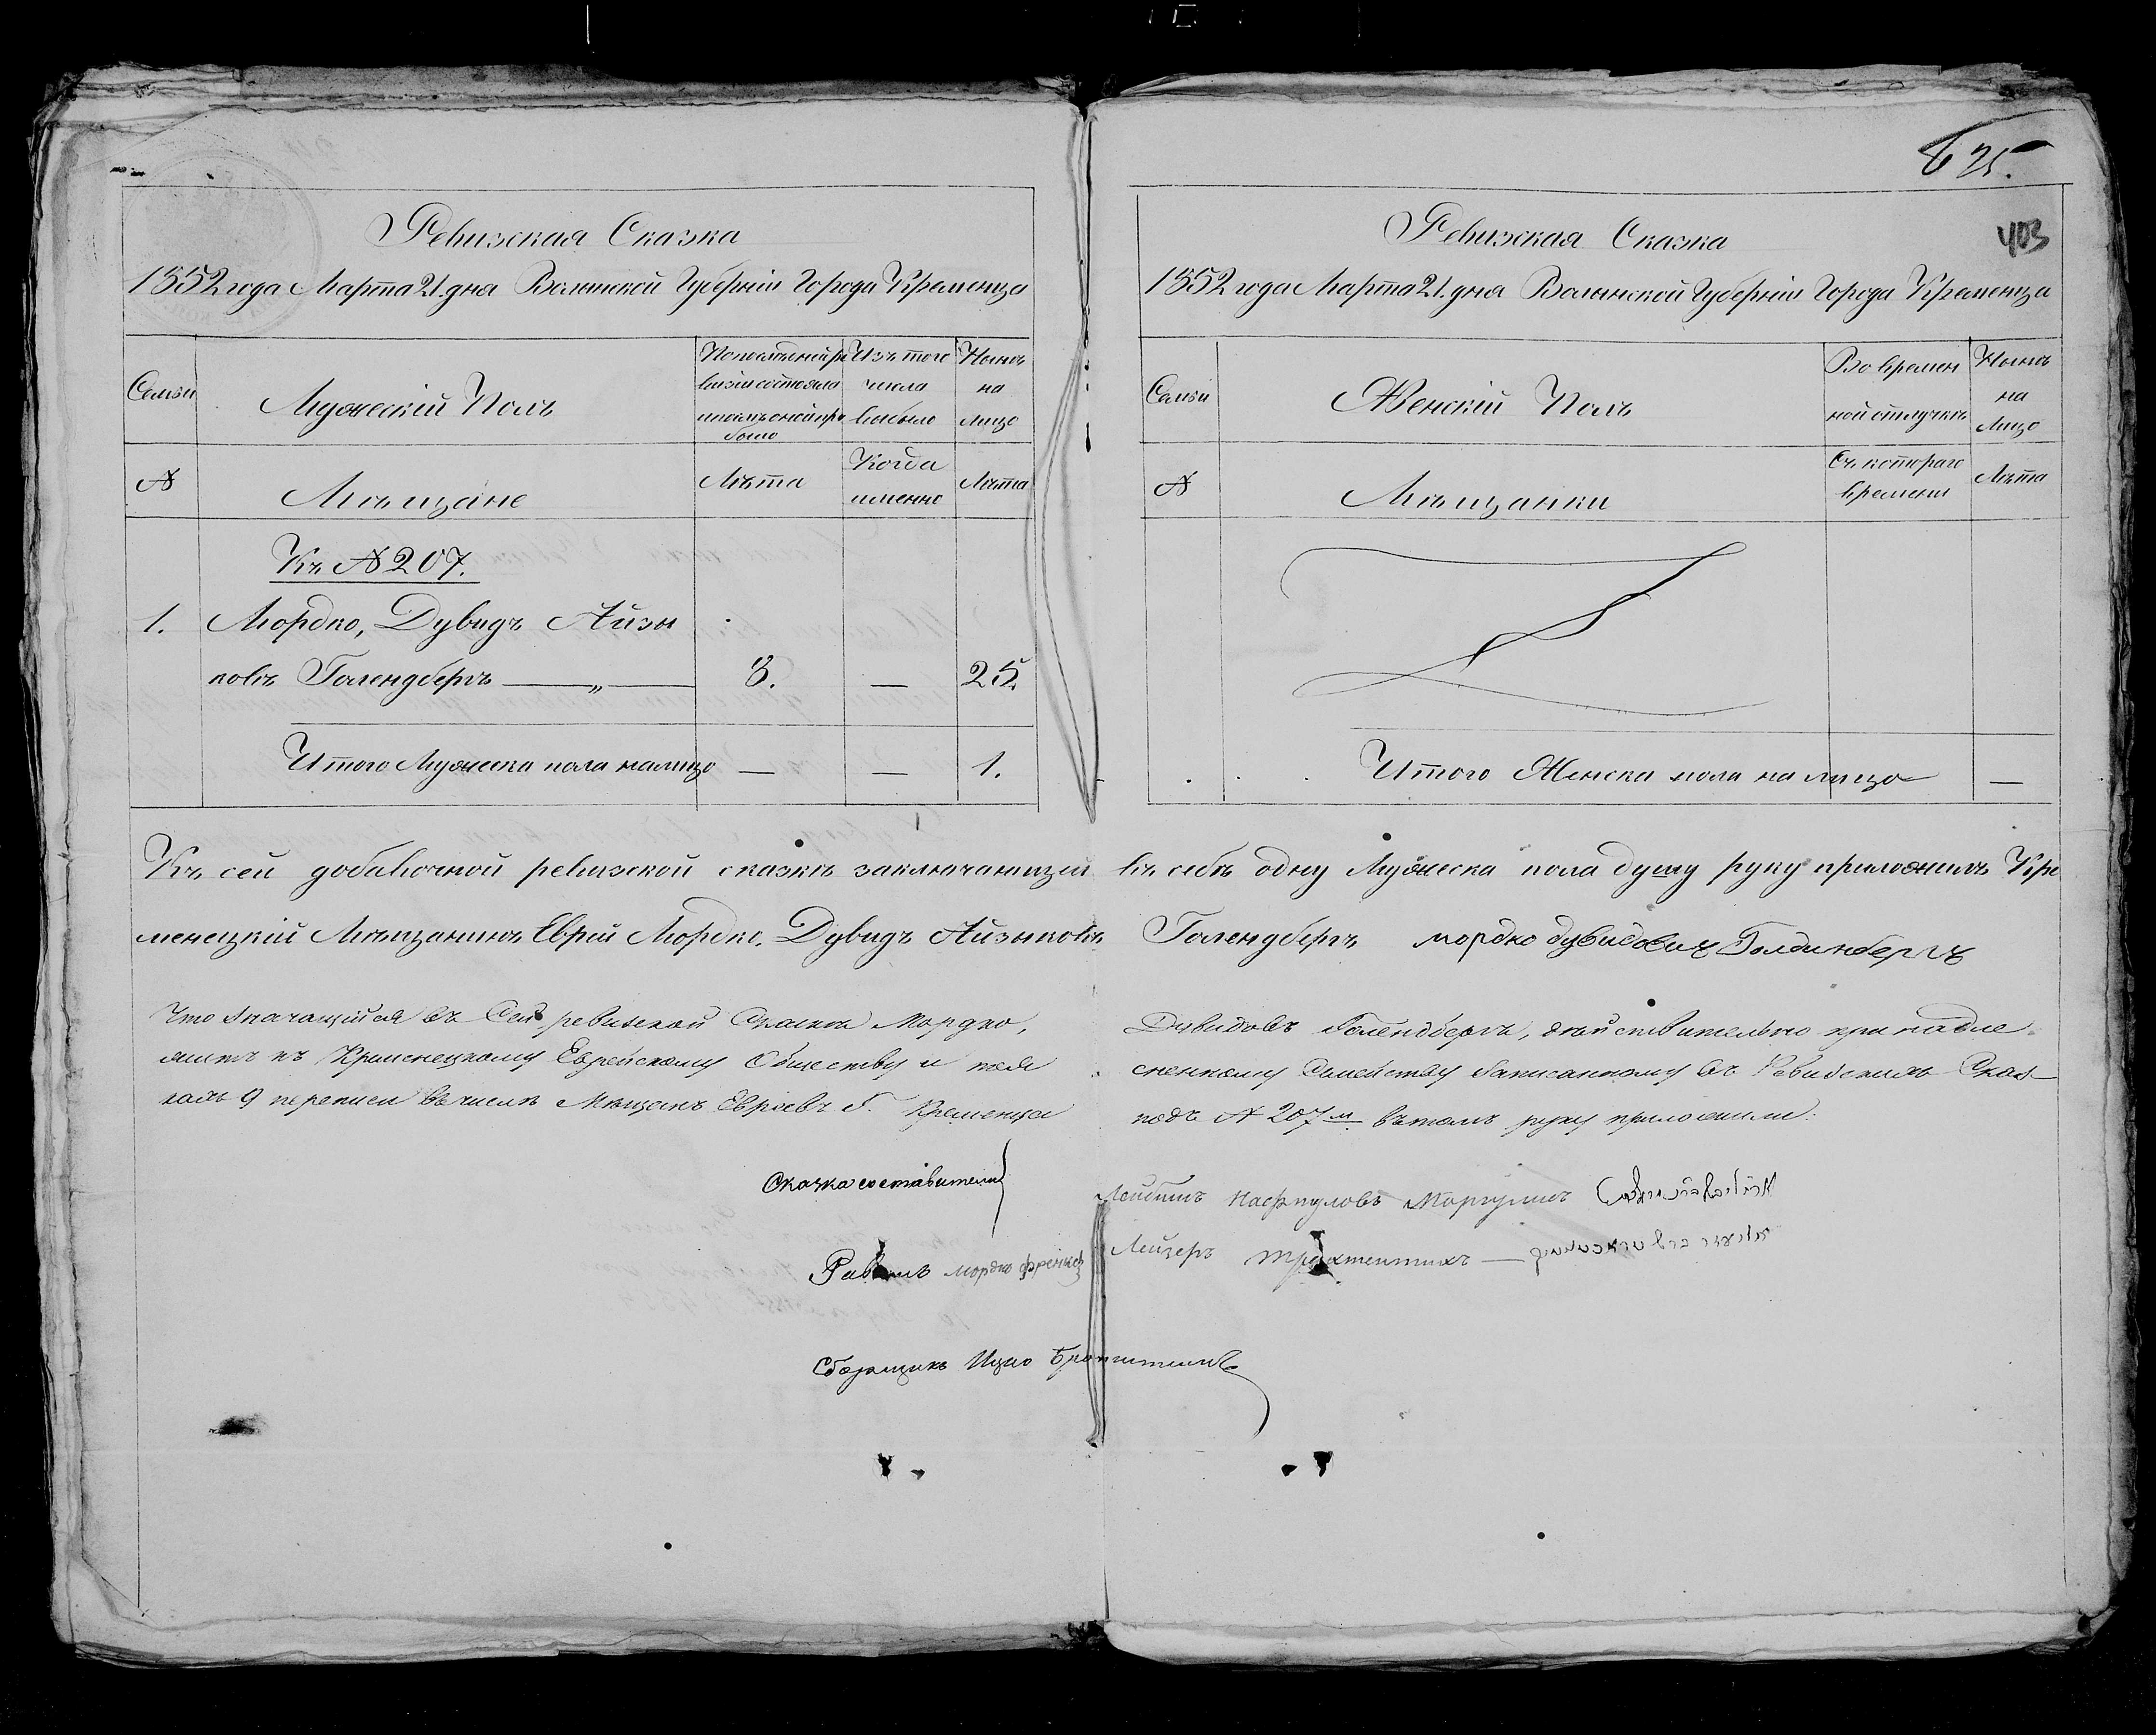 625.
403
Ревизская Сказка
1852 года Марта 21. дня Волынской Губерніи Города Кременца
Семьи
Мужескій Полъ
По последней ре
визіи состояло
и после оной при
было
Изъ того
числа
выбыло
Ныне
на
лицо
№
Мѣщане
Лѣта
Когда
именно
Лѣта
Къ № 207.
1. Мордко, Дувидъ Айзы
ковъ Голендберъ — „ — 8. — 25.
Итого Мужеска пола налицо — — 1.
Ревизская Сказка
1852 года Марта 21. дня Волынской Губерніи Города Кременца
Семьи
Женскій Полъ
Во времен
ной отлучкѣ
Ныне
на
Лицо
№
Мѣщанки
Съ котораго
времени
Лѣта
Итого Женска пола на лицо —
Къ сей добавочной ревизской сказкѣ заключающей въ себѣ одну Мужеска пола душу руку приложилъ Кре
менецкій Мѣщанинъ Еврей Мордко, Дувидъ Айзыковъ Голендберъ мордко дувидович Голдинбергъ
Что значащийся въ Сей ревизской Сказкѣ Мордко, Дувидовъ Голендберъ, действительно принадле
житъ къ Кременецкому Еврейскому Обществу и семейству записанному въ Ревизскихъ Сказ
кахъ 9 переписи въ числѣ Мещанъ Евреевъ г. Кременца подъ № 207м въ томъ руку приложили:
Сказкосоставители
Лейбишъ Маргулисъ
Равинъ мордко френкел
Лейзеръ
Сборщикъ Ицко